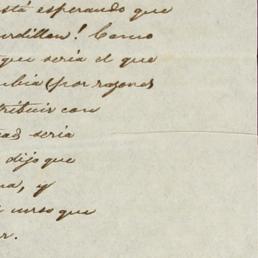 está esperando que
urdillon! Como
que seria el que
ubia (por razones
tribuir con
ead seria
dijo que
na, y
curso que
r.